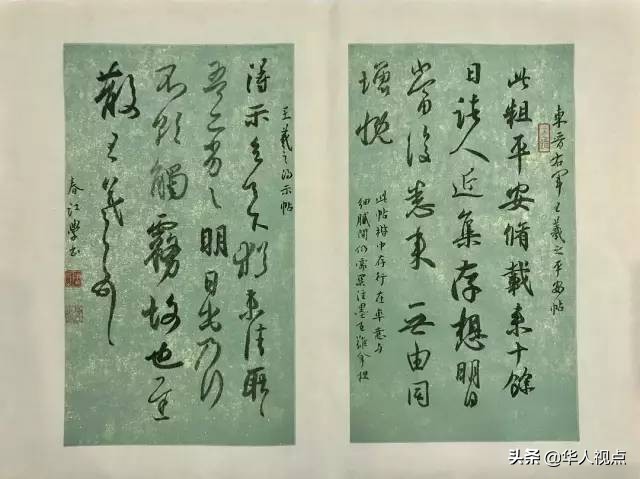 東晉右軍王羲之平安帖
此粗平安脩載來十餘
日諸人近集存想明日
當復悉來無由同
增慨
此帖楷中存行在率意与
细腻间仍
王羲之得示帖
得示知足下猶未佳耿〻
吾亦劣〻明日出乃行
不欲觸霧故也遲
散王羲之頓首
春江學书
头条 @华人视点